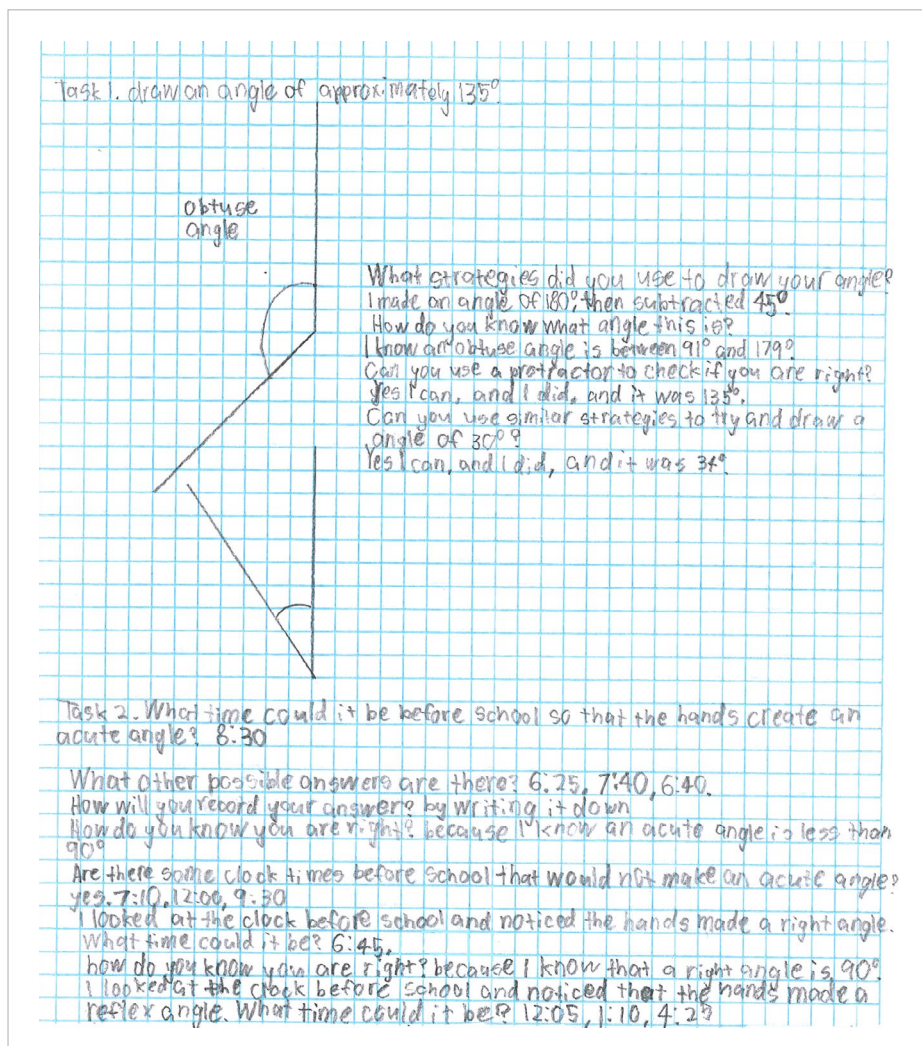 Task 1. draw an angle of approximately 135°.
obtuse
angle
What strategies did you use to draw your angle?
I made an angle of 180°, then subtracted 45°
How do you know what angle this is?
I know an obtuse angle is between 91° and 179°.
Can you use a protractor to check if you are right?
Yes I can, and I did, and it was 135°.
Can you use similar strategies to try and draw a
angle of 30°?
Yes I can, and I did, and it was 34°.
Task 2. What time could it be before school so that the hands create an
acute angle? 8:30
What other possible answers are there? 6:25, 7:40, 6:40.
How will you record your answer? by writing it down
How do you know you are right? because I know an acute angle is less than
90°
Are there some clock times before school that would not make an acute angle?
yes. 7:10, 12:00, 9:30
I looked at the clock before school and noticed the hands made a right angle.
What time could it be? 6:45.
how do you know you are right? because I know that a right angle is 90°.
I looked at the clock before school and noticed that the hands made a
reflex angle. What time could it be? 12:05, 1:10, 4:25